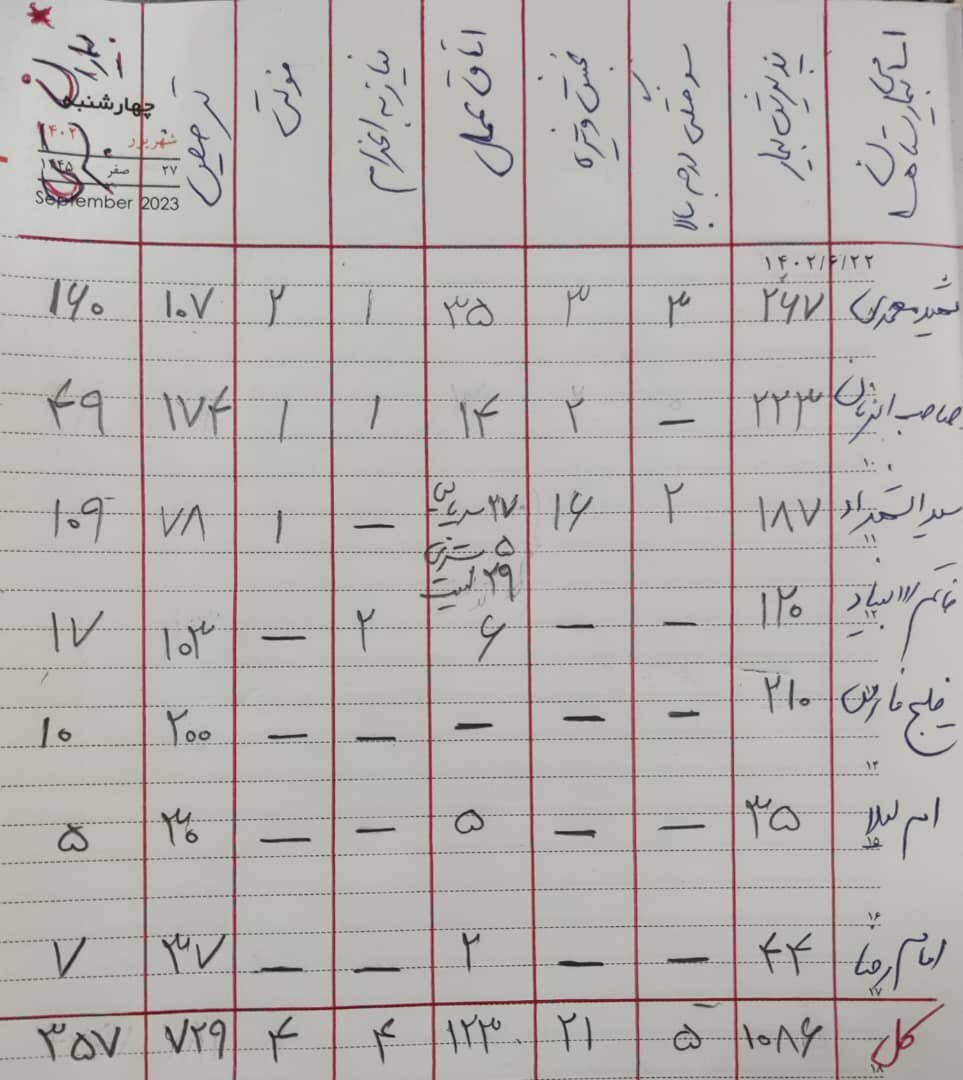 پذیرش بیمار سوختگی درجه بالا اتاق عمل نیاز به اعزام فوتی ترخیص
چهارشنبه
شهریور ۱۴۰۲
۲۷ صفر ۱۴۴۵
September 2023
۱۴۰۲/۶/۲۲
شهید محمدی ۲۶۷ ۳ ۳ ۳۵ ۱ ۲ ۱۰۷ ۱۶۰
صاحب الزمان ۲۲۳ — ۲ ۱۴ ۱ ۱ ۱۷۴ ۴۹
۱۰
سید الشهداء ۱۸۷ ۲ ۱۶ ۲۷ سرپایی — ۱ ۷۸ ۱۰۹
۱۱
۵ بستری
۲۹ لیست
خاتم الانبیاء ۱۲۰ — — ۶ ۲ — ۱۰۳ ۱۷
۱۲
خلیج فارس ۲۱۰ — — — — — ۲۰۰ ۱۰
۱۴
ام لیلا ۳۵ — — ۵ — — ۳۰ ۵
۱۵
۱۶
امام رضا ۴۴ — — ۲ — — ۳۷ ۷
۱۷
کل ۱۰۸۶ ۵ ۲۱ ۱۲۳ ۴ ۴ ۷۲۹ ۳۵۷
۱۸